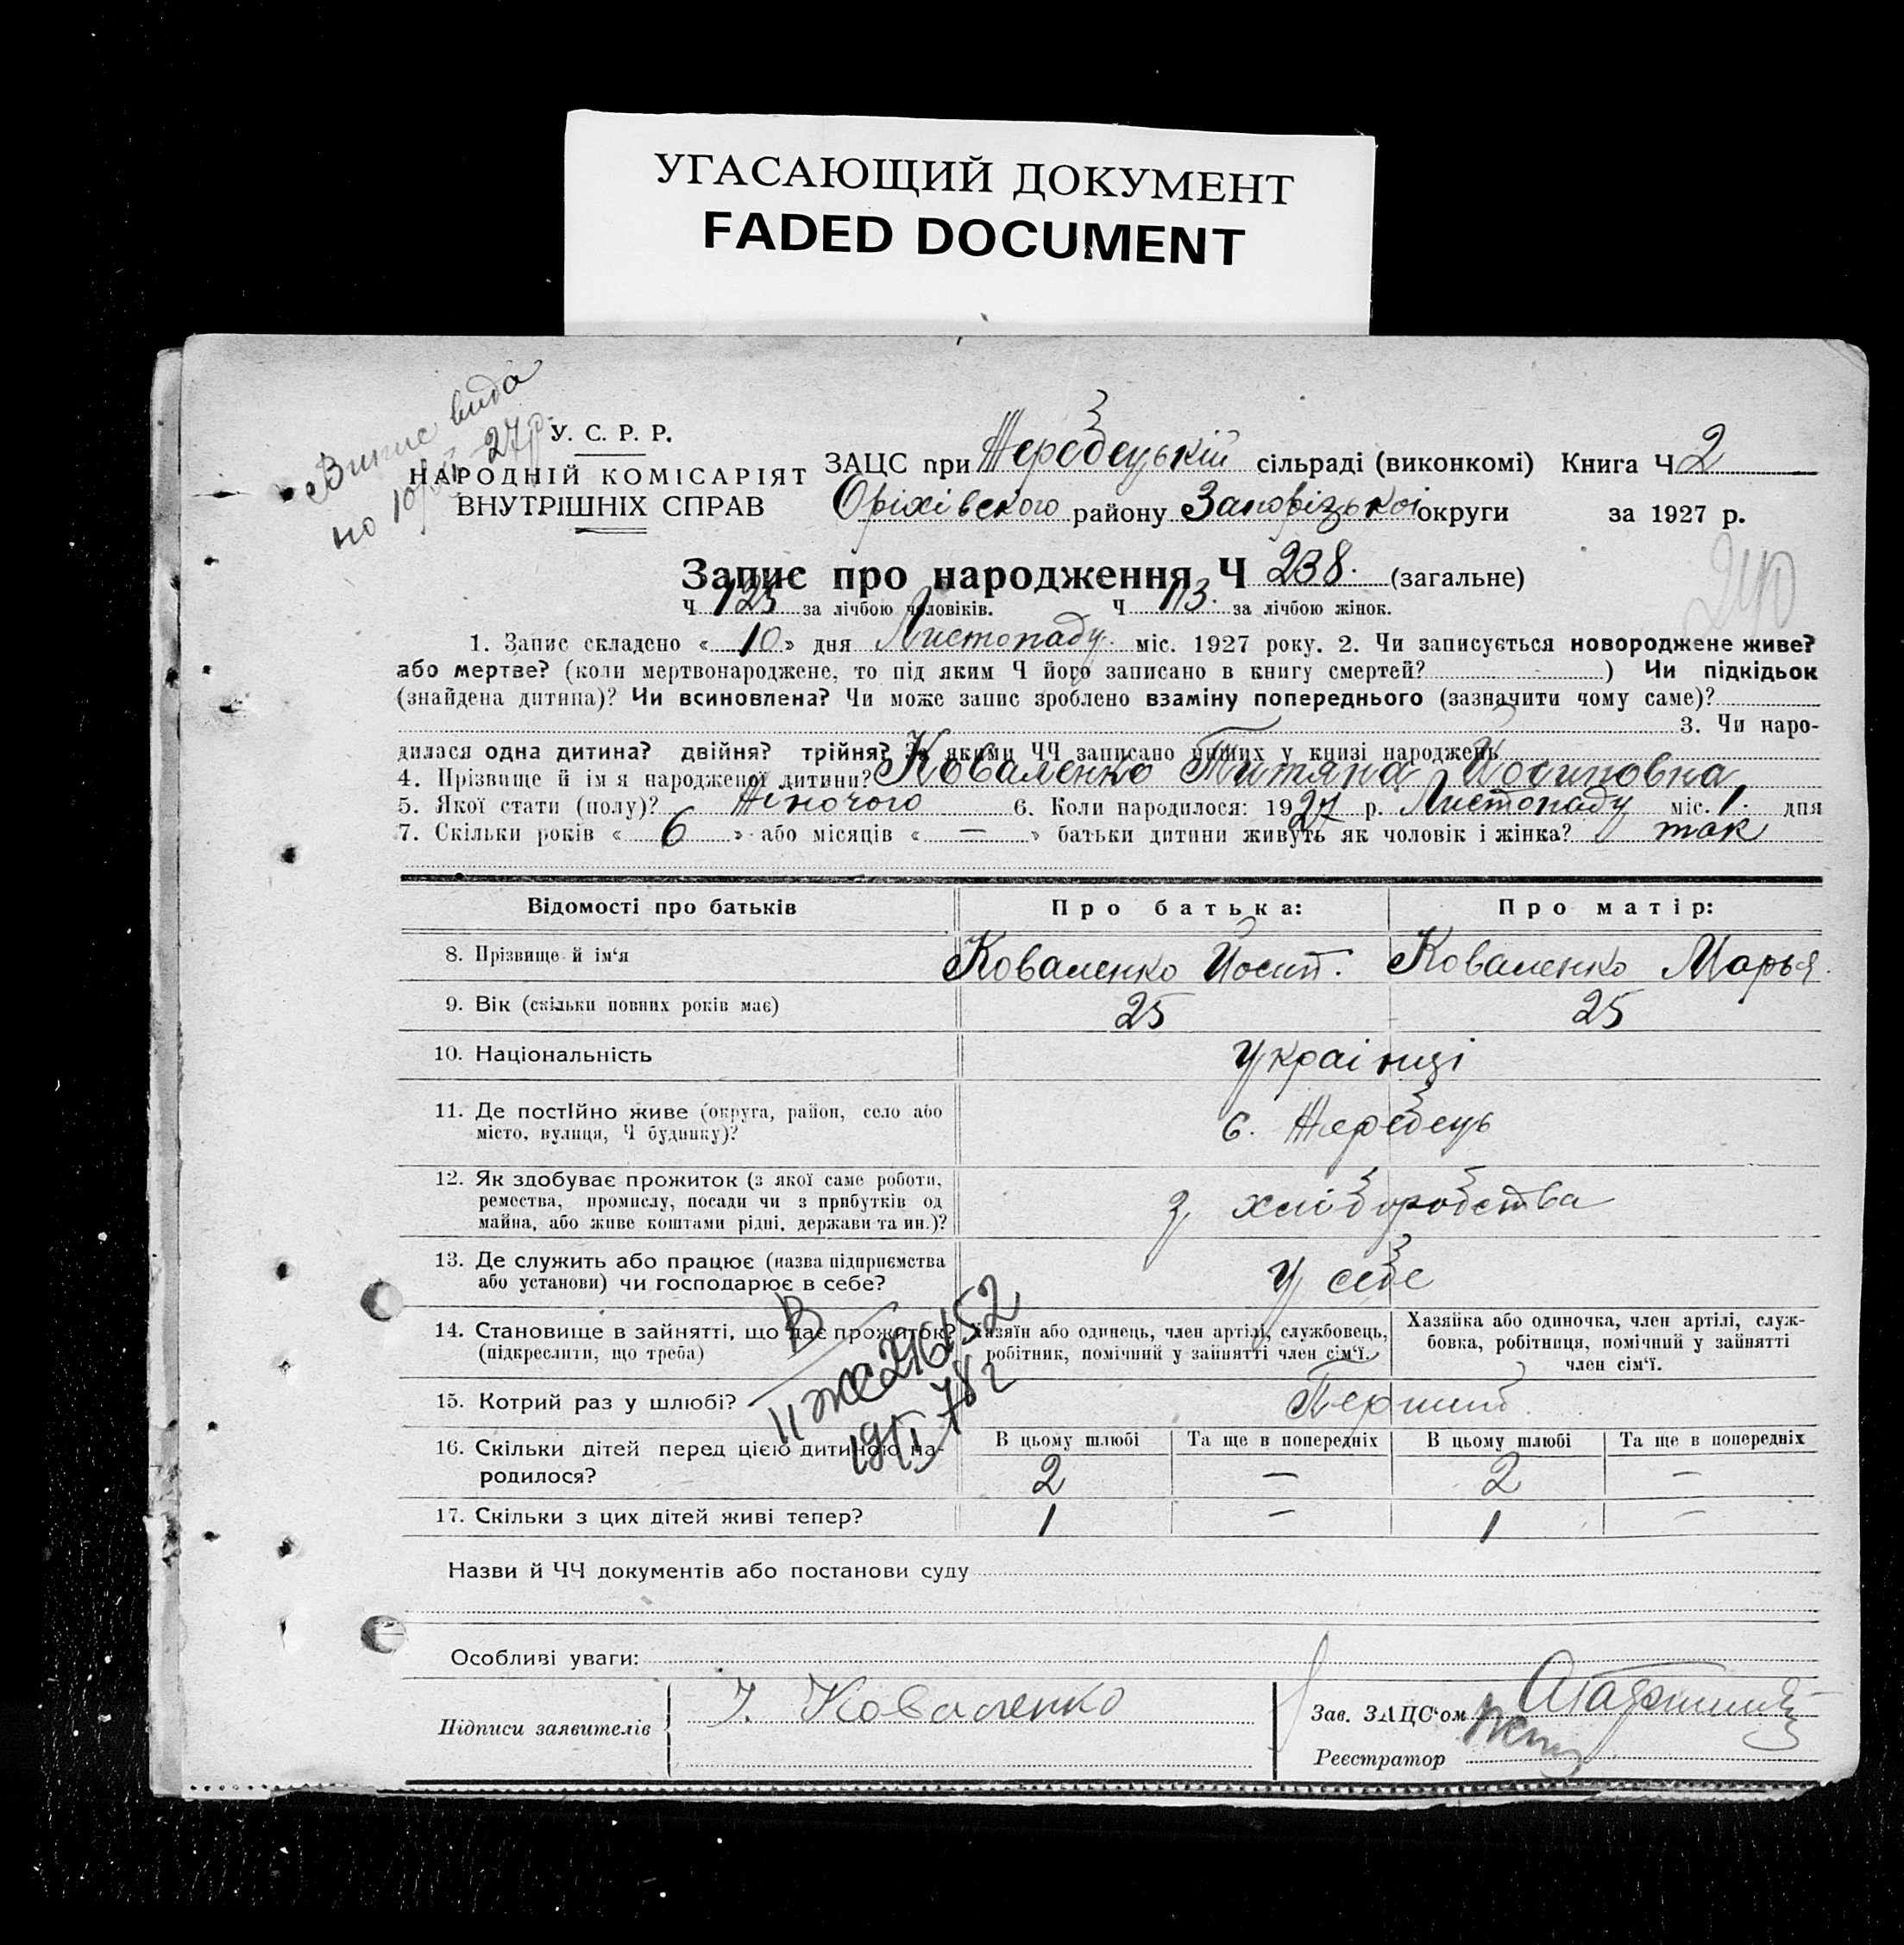 УГАСАЮЩИЙ ДОКУМЕНТ
FADED DOCUMENT
Випис вида
но 10/XI-27р.
У. С. Р. Р.
НАРОДНІЙ КОМІСАРІЯТ
ВНУТРІШНІХ СПРАВ
ЗАЦС при Жеребецькій сільраді (виконкомі) Книга Ч 2
Оріхівского району Запорізькоі округи за 1927 р.
Запис про народження Ч 238. (загальне)
240
Ч 125 за лічбою чоловіків. Ч 113. за лічбою жінок.
1. Запис складено « 10 » дня Листопаду міс. 1927 року. 2. Чи записується новороджене живе?
або мертве? (коли мертвонароджене, то під яким Ч його записано в книгу смертей? ) Чи підкідьок
(знайдена дитина)? Чи всиновлена? Чи може запис зроблено взаміну попереднього (зазначити чому саме)?
3. Чи наро-
дилася одна дитина? двійня? трійня? За якими ЧЧ записано инших у книзі народжень
4. Прізвище й ім я народженої дитини? Коваленко Титяна Йосиповна
5. Якої стати (полу)? Жіночого 6. Коли народилося: 1927 р. Листопаду міс. 1. дня
7. Скільки років « 6 » або місяців « — » батьки дитини живуть як чоловік і жінка? так
Відомості про батьків Про батька: Про матір:
8. Прізвище й ім‘я Коваленко Йосип. Коваленко Марья.
9. Вік (скільки повних років має) 25 25
10. Національність Украінці
11. Де постійно живе (округа, район, село або
місто, вулиця, Ч будинку)? с. Жеребець
12. Як здобуває прожиток (з якої саме роботи,
ремества, промислу, посади чи з прибутків од
майна, або живе коштами рідні, держави та ин.)? З хліборобства
13. Де служить або працює (назва підприємства
або установи) чи господарює в себе? У себе
14. Становище в зайнятті, що дає прожиток?
(підкреслити, що треба)
Хазяїн або одинець, член артілі, службовець,
робітник, помічний у зайнятті член сім‘ї.
Хазяйка або одиночка, член артілі, служ-
бовка, робітниця, помічний у зайнятті
член сім‘ї.
15. Котрий раз у шлюбі? Перший
16. Скільки дітей перед цією дитиною на-
родилося?
В цьому шлюбі Та ще в попередніх В цьому шлюбі Та ще в попередніх
2 — 2 —
17. Скільки з цих дітей живі тепер? 1 — 1 —
Назви й ЧЧ документів або постанови суду
Особливі уваги:
Підписи заявителів Й. Коваленко
Зав. ЗАЦС‘ом
Реєстратор